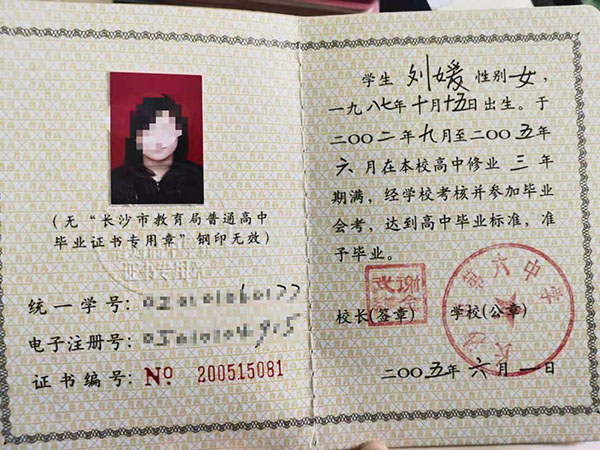 (无“长沙市教育局普通高中
毕业证书专用章”钢印无效)
证书专用章
统一学号:
电子注册号:
证书编号: No 200515081
学生 刘媛 性别 女,
一九八七年十月十五日出生。于
二〇〇二年九月至二〇〇五年
六月在本校高中修业三年
期满,经学校考核并参加毕业
会考,达到高中毕业标准,准
予毕业。
校长(签章) 学校(公章)
第六中学
二〇〇五年六月一日